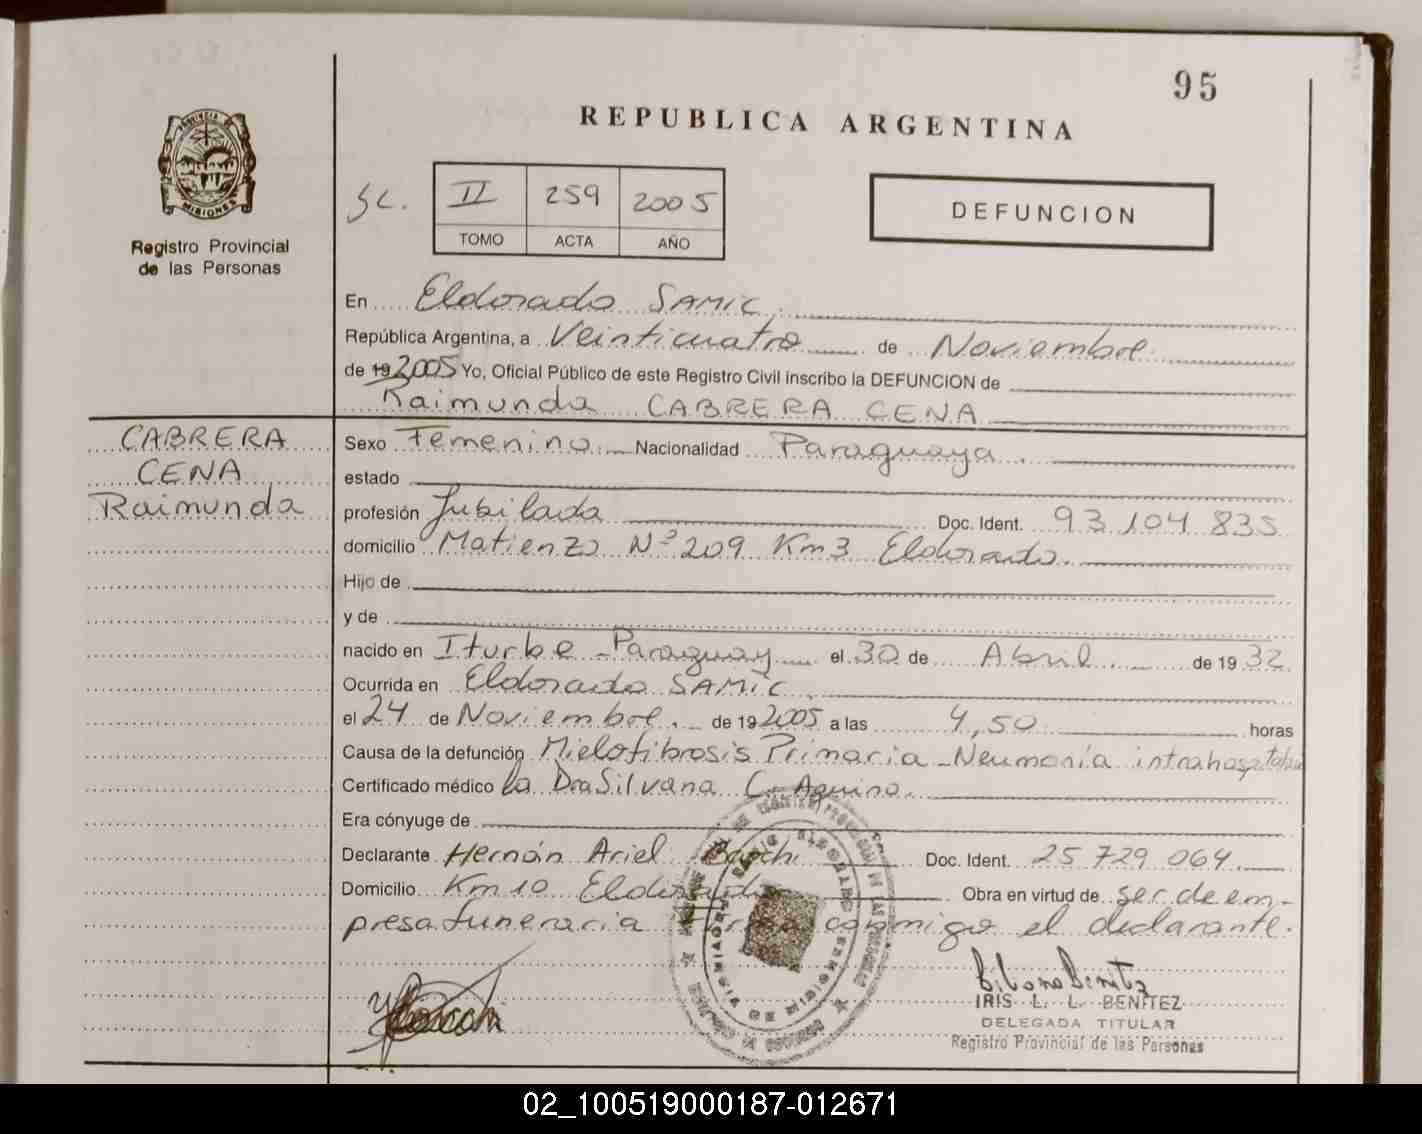 95
REPUBLICA ARGENTINA
PROVINCIA DE MISIONES
Registro Provincial
de las Personas
SC.
II 259 2005
TOMO ACTA AÑO
DEFUNCION
En Eldorado SAMIC.
República Argentina, a Veinticuatro de Noviembre.
de 19 2005 Yo, Oficial Público de este Registro Civil inscribo la DEFUNCION de
Raimunda CABRERA CENA
CABRERA
CENA
Raimunda
Sexo Femenino. Nacionalidad Paraguaya.
estado
profesión Jubilada Doc. Ident. 93.104.835
domicilio Matienzo Nº 209 Km 3 Eldorado.
Hijo de
y de
nacido en Iturbe - Paraguay el 30 de Abril. de 19 32
Ocurrida en Eldorado SAMIC.
el 24 de Noviembre. de 19 2005 a las 4,50 horas
Causa de la defunción Mielofibrosis Primaria - Neumonía intrahospitalaria
Certificado médico la Dra Silvana C. Aquino.
Era cónyuge de
Declarante Hernán Ariel Doc. Ident. 25.729.064.
Domicilio Km 10 Eldorado Obra en virtud de ser de em-
presa funeraria Firma conmigo el declarante.
IRIS L. L. BENÍTEZ
DELEGADA TITULAR
Registro Provincial de las Personas
02_100519000187-012671